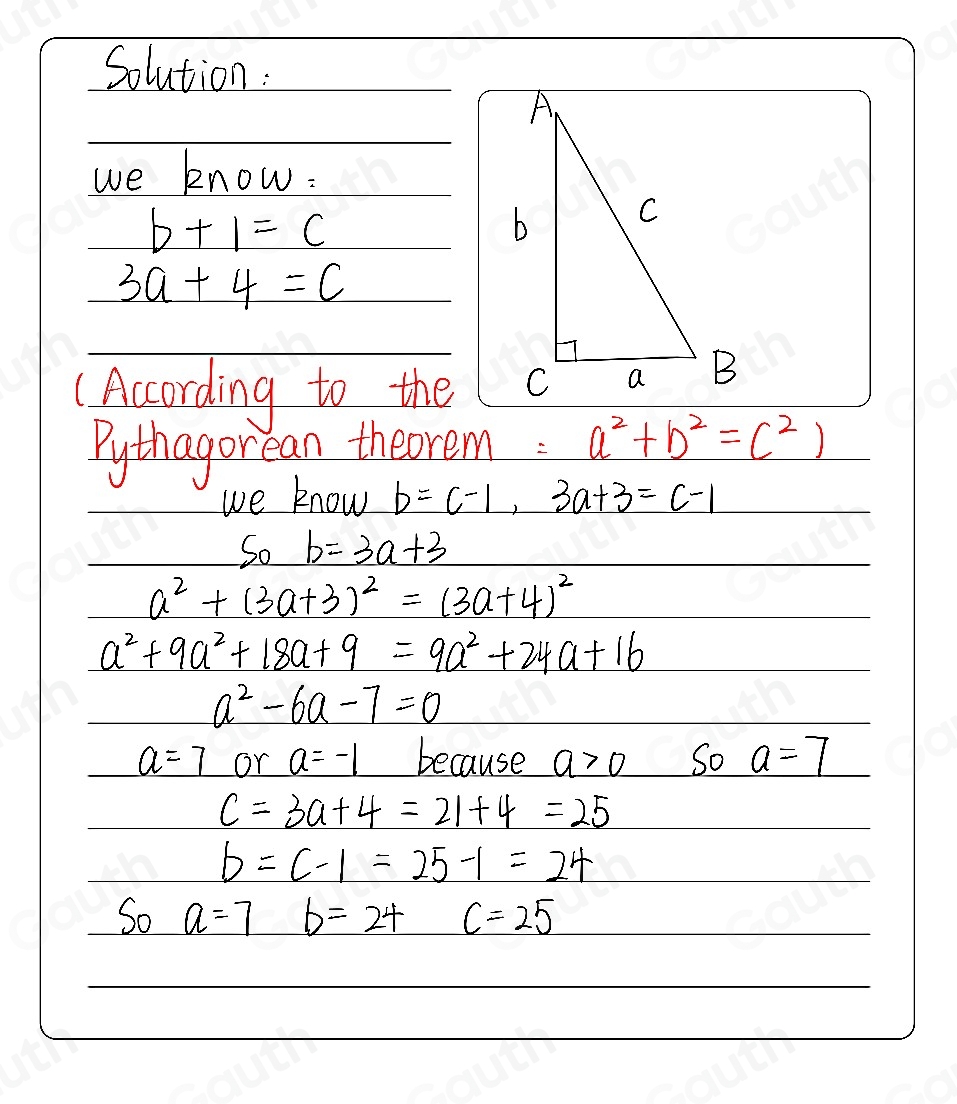 Solution:
we know:
b+1=C
3a+4=C
A
b
c
C
a
B
(According to the
Pythagorean theorem: a²+b²=c²)
we know b=c-1, 3a+3=c-1
So b=3a+3
a²+(3a+3)²=(3a+4)²
a²+9a²+18a+9=9a²+24a+16
a²-6a-7=0
a=7 or a=-1 because a>0 So a=7
C=3a+4=21+4=25
b=C-1=25-1=24
So a=7 b=24 C=25
Gauth